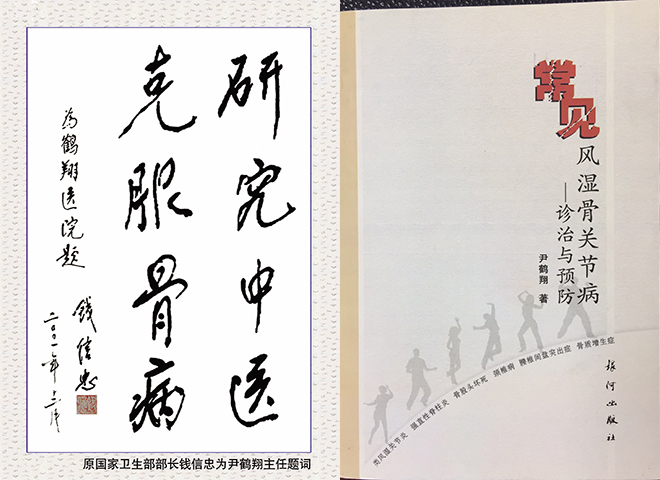 研究中医
克服骨病
为鹤翔医院题
钱信忠
二〇〇一年十二月
原国家卫生部部长钱信忠为尹鹤翔主任题词
常见
风湿骨关节病
——诊治与预防
尹鹤翔 著
类风湿关节炎 强直性脊柱炎 骨股头坏死 颈椎病 腰椎间盘突出症 骨质增生症
银河出版社